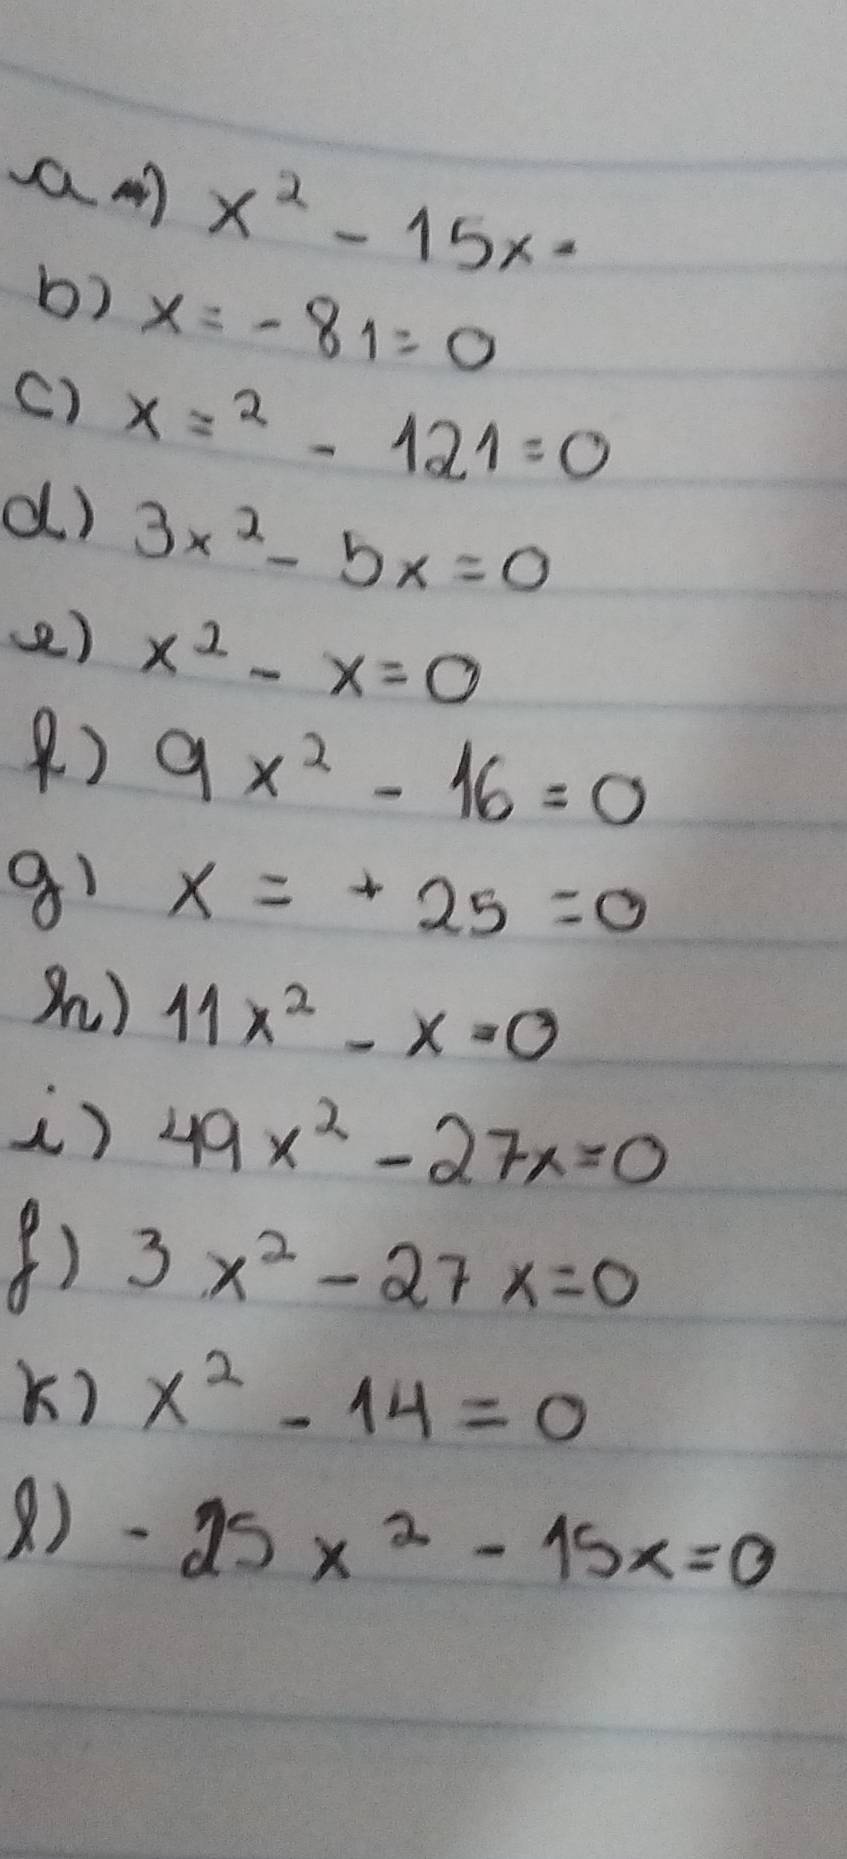 a) x² - 15x -
b) x = - 81 = 0
c) x = ² - 121 = 0
d) 3x² - 5x = 0
e) x² - x = 0
f) 9x² - 16 = 0
g) x = + 25 = 0
h) 11x² - x = 0
i) 49x² - 27x = 0
j) 3x² - 27x = 0
k) x² - 14 = 0
l) - 25x² - 15x = 0